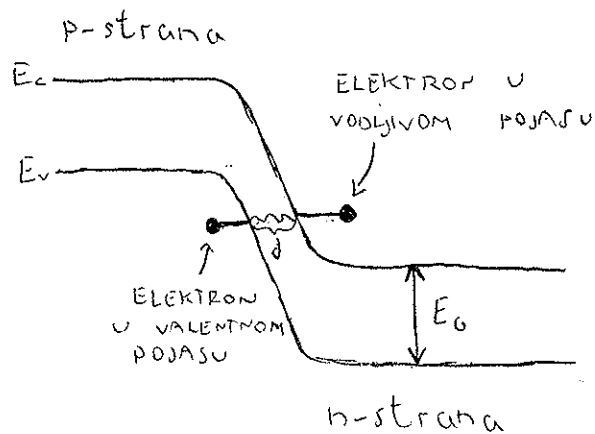 p-strana
Ec
ELEKTRON U
VODLJIVOM POJASU
Ev
d
ELEKTRON
U VALENTNOM
POJASU
EG
n-strana